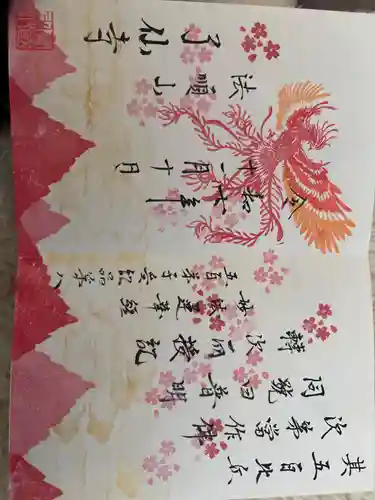 其五百比丘
次第當作佛
同號曰普明
轉次而授記
妙法蓮華経
五百弟子受記品第八
令和六年
十一月十日
法明山
了仙寺